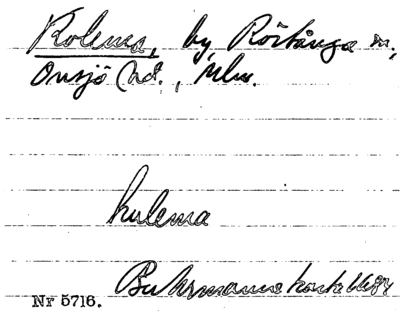 Rolema, by, Röstånga sn.,
Onsjö hd., Mlm.
hulema
Buhrmans karta 1684
Nr 5716.